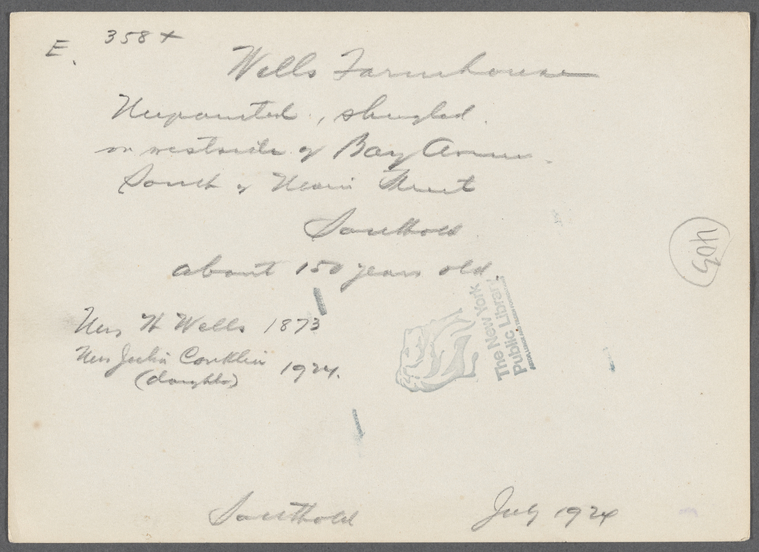 E. 358+
Wells Farmhouse
Unpainted, shingled.
on westside of Bay Avenue.
South of Main Street
Southold
about 150 years old.
403
Mrs H Wells 1873
Mrs Julia Conklin 1924.
(daughter)
The New York
Public Library
Southold July 1924